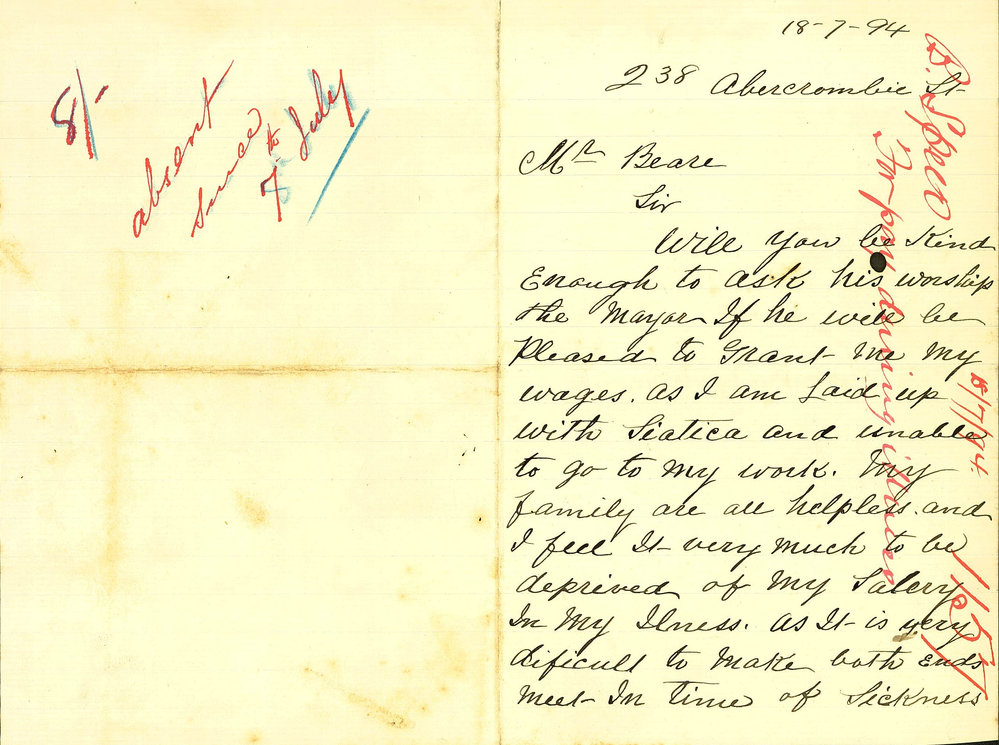 8/-
absent
since
7th July
18-7-94
238 Abercrombie St
Mr Beare
Sir
Will you be Kind
Enough to ask his worship
the Mayor If he will be
Pleased to Grant Me My
wages. as I am Laid up
with Siatica and unable
to go to My work. My
family are all helpless. and
I feel It very Much to be
deprived of My Salery
In My Ilness. as It is very
dificult to Make both Ends
Meet In Time of Sickness
For pay during illness
/7/94